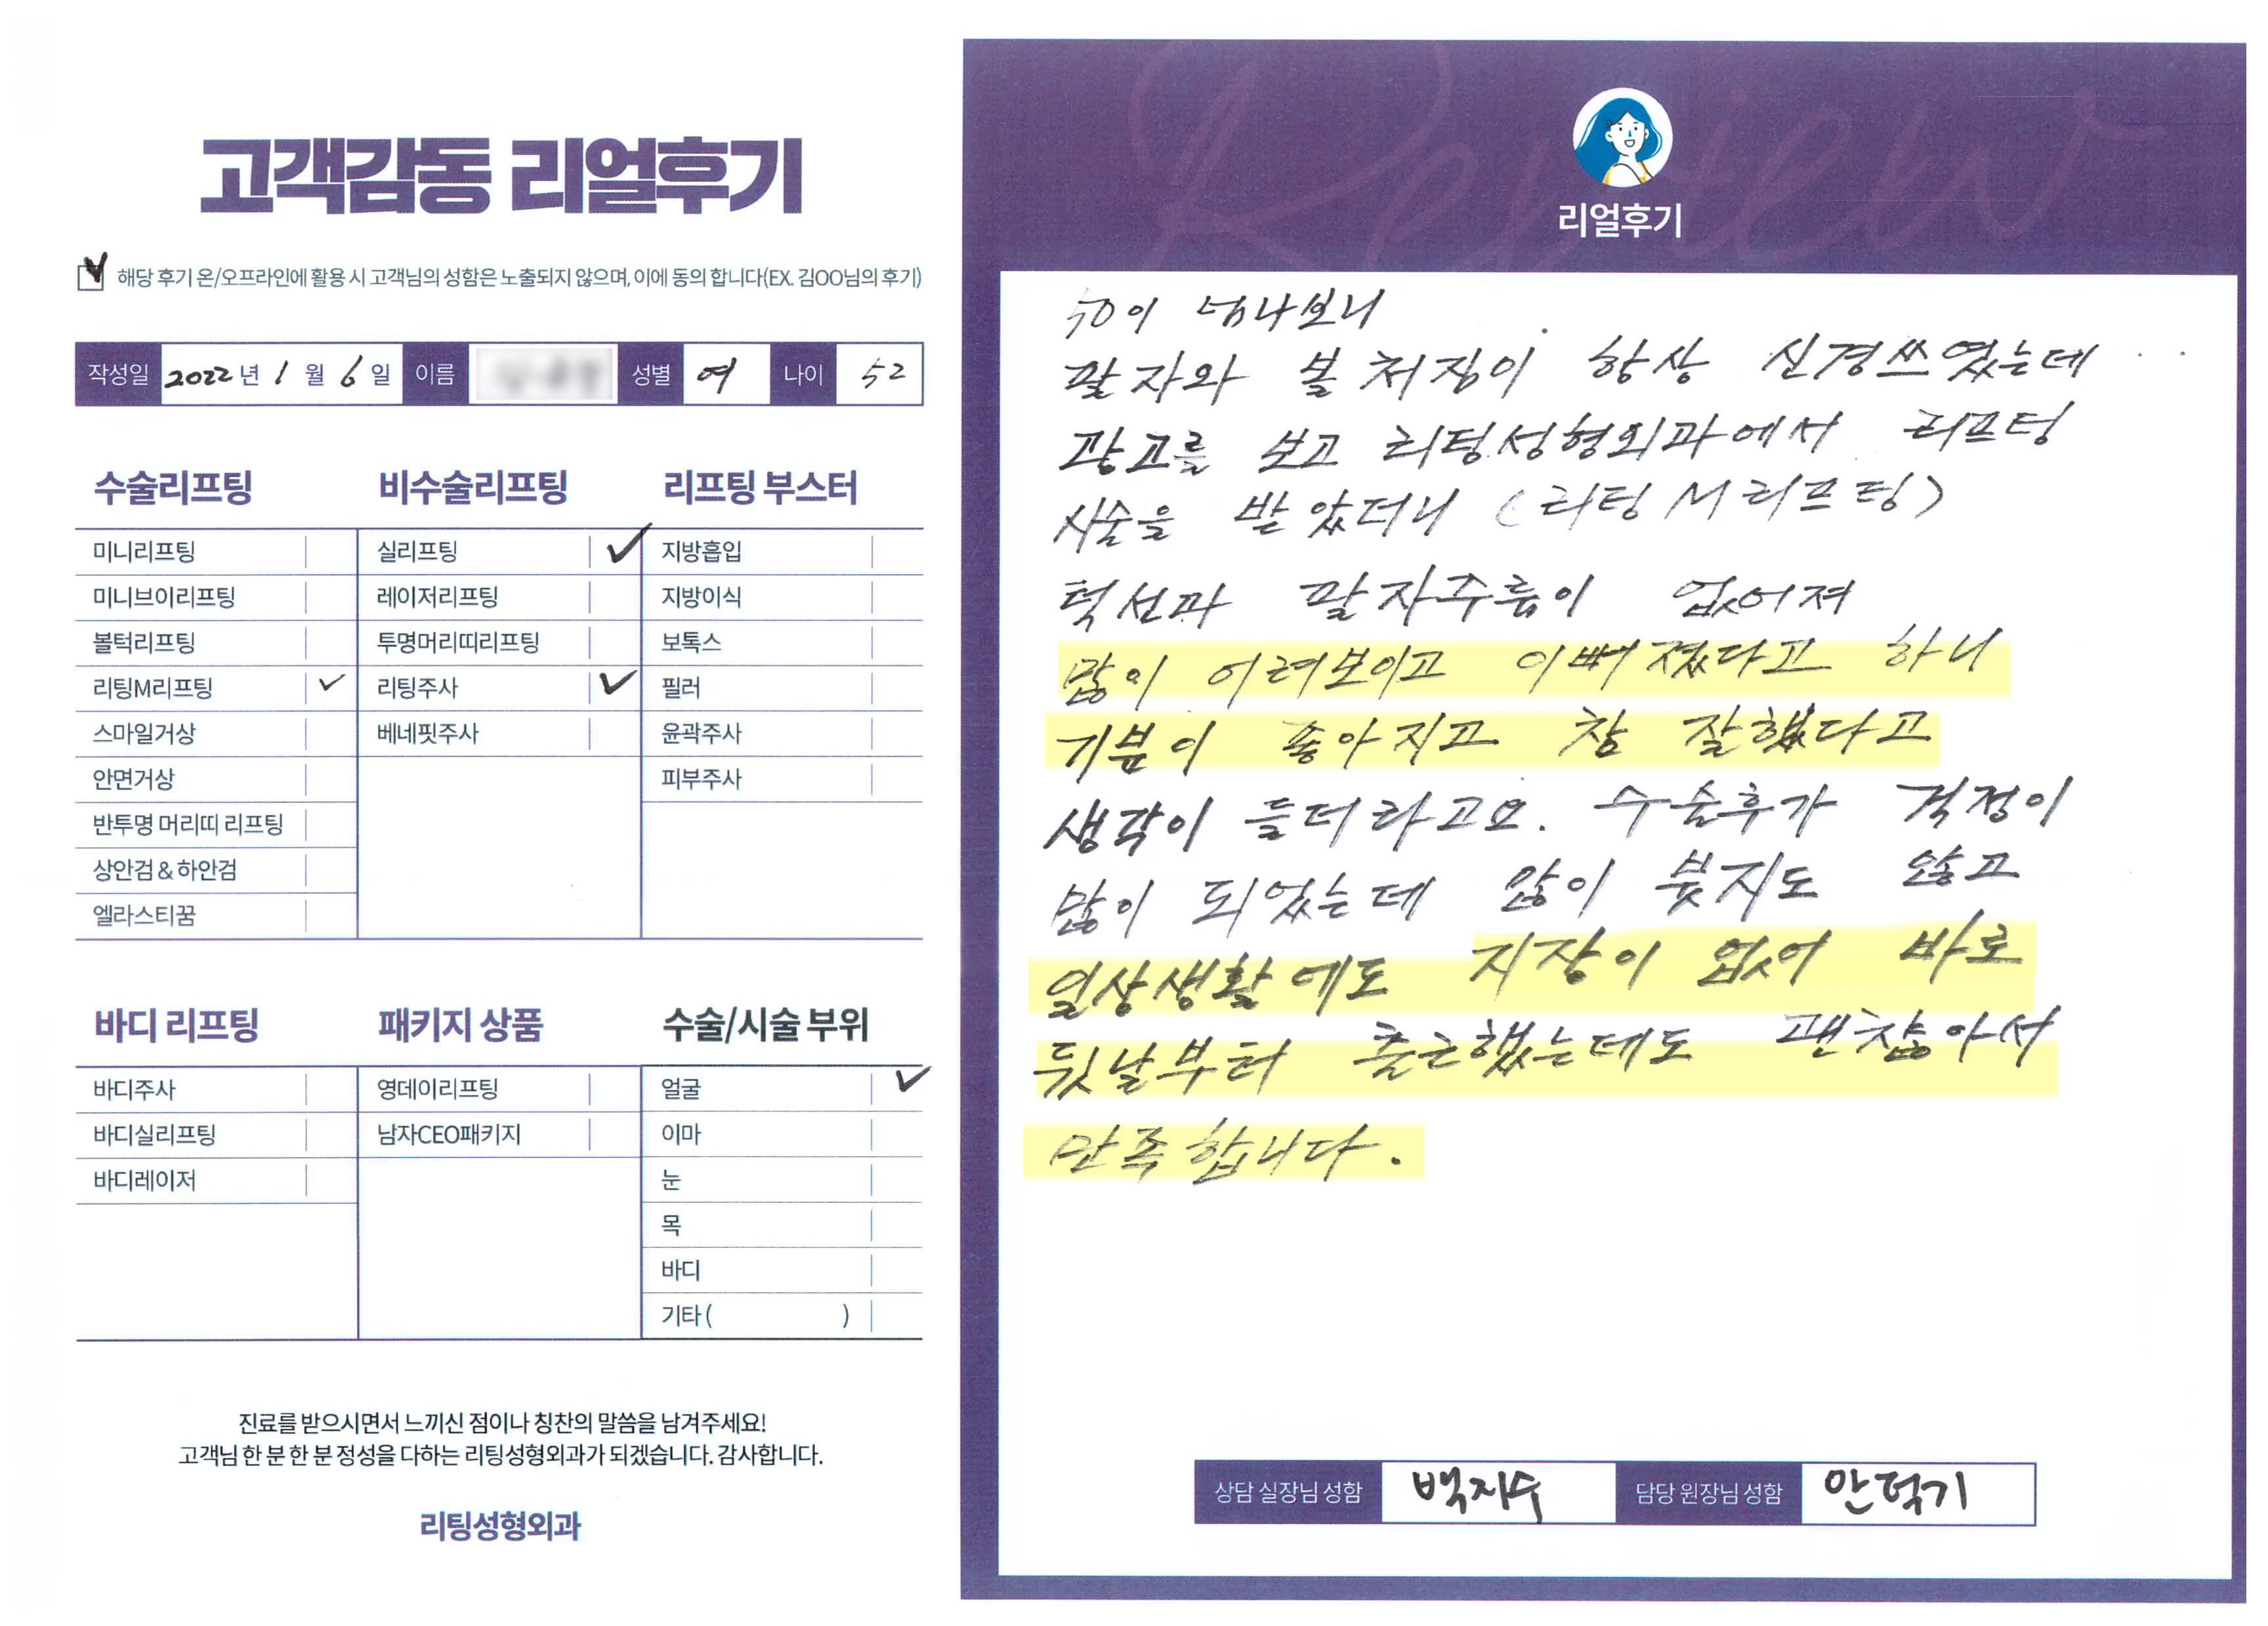 고객감동 리얼후기
해당 후기 온/오프라인에 활용 시 고객님의 성함은 노출되지 않으며, 이에 동의 합니다(EX. 김OO님의 후기)
작성일 2022년 1월 6일 이름 성별 여 나이 52
수술리프팅
미니리프팅
미니브이리프팅
볼턱리프팅
리팅M리프팅 ✓
스마일거상
안면거상
반투명 머리띠 리프팅
상안검 & 하안검
엘라스티꿈
비수술리프팅
실리프팅 ✓
레이저리프팅
투명머리띠리프팅
리팅주사 ✓
베네핏주사
리프팅 부스터
지방흡입
지방이식
보톡스
필러
윤곽주사
피부주사
바디 리프팅
바디주사
바디실리프팅
바디레이저
패키지 상품
영데이리프팅
남자CEO패키지
수술/시술 부위
얼굴 ✓
이마
눈
목
바디
기타 ( )
진료를 받으시면서 느끼신 점이나 칭찬의 말씀을 남겨주세요!
고객님 한 분 한 분 정성을 다하는 리팅성형외과가 되겠습니다. 감사합니다.
리팅성형외과
Review
리얼후기
50이 넘나보니
팔자와 볼처짐이 항상 신경쓰였는데
광고를 보고 리팅성형외과에서 리프팅
시술을 받았더니 (리팅M리프팅)
턱선과 팔자주름이 없어져
많이 어려보이고 이뻐졌다고 하니
기분이 좋아지고 참 잘했다고
생각이 들더라고요. 수술후가 걱정이
많이 되었는데 많이 붓지도 않고
일상생활에도 지장이 없어 바로
뒷날부터 출근했는데도 괜찮아서
만족합니다.
상담 실장님 성함 백지수 담당 원장님 성함 안덕기